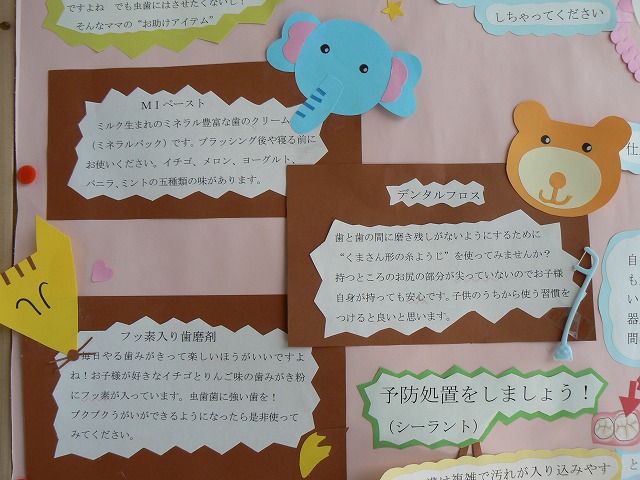 ですよね でも虫歯にはさせたくないし！
そんなママの"お助けアイテム"
しちゃってください
ＭＩペースト
ミルク生まれのミネラル豊富な歯のクリーム
（ミネラルパック）です。ブラッシング後や寝る前に
お使いください。イチゴ、メロン、ヨーグルト、
バニラ、ミントの五種類の味があります。
デンタルフロス
歯と歯の間に磨き残しがないようにするために
"くまさん形の糸ようじ"を使ってみませんか？
持つところのお尻の部分が尖っていないのでお子様
自身が持っても安心です。子供のうちから使う習慣を
つけると良いと思います。
フッ素入り歯磨剤
毎日やる歯みがきって楽しいほうがいいですよ
ね！お子様が好きなイチゴとりんご味の歯みがき粉
にフッ素が入っています。虫歯菌に強い歯を！
ブクブクうがいができるようになったら是非使って
みてください。
予防処置をしましょう！
（シーラント）
は複雑で汚れが入り込みやす
仕
自
も
器
間
と